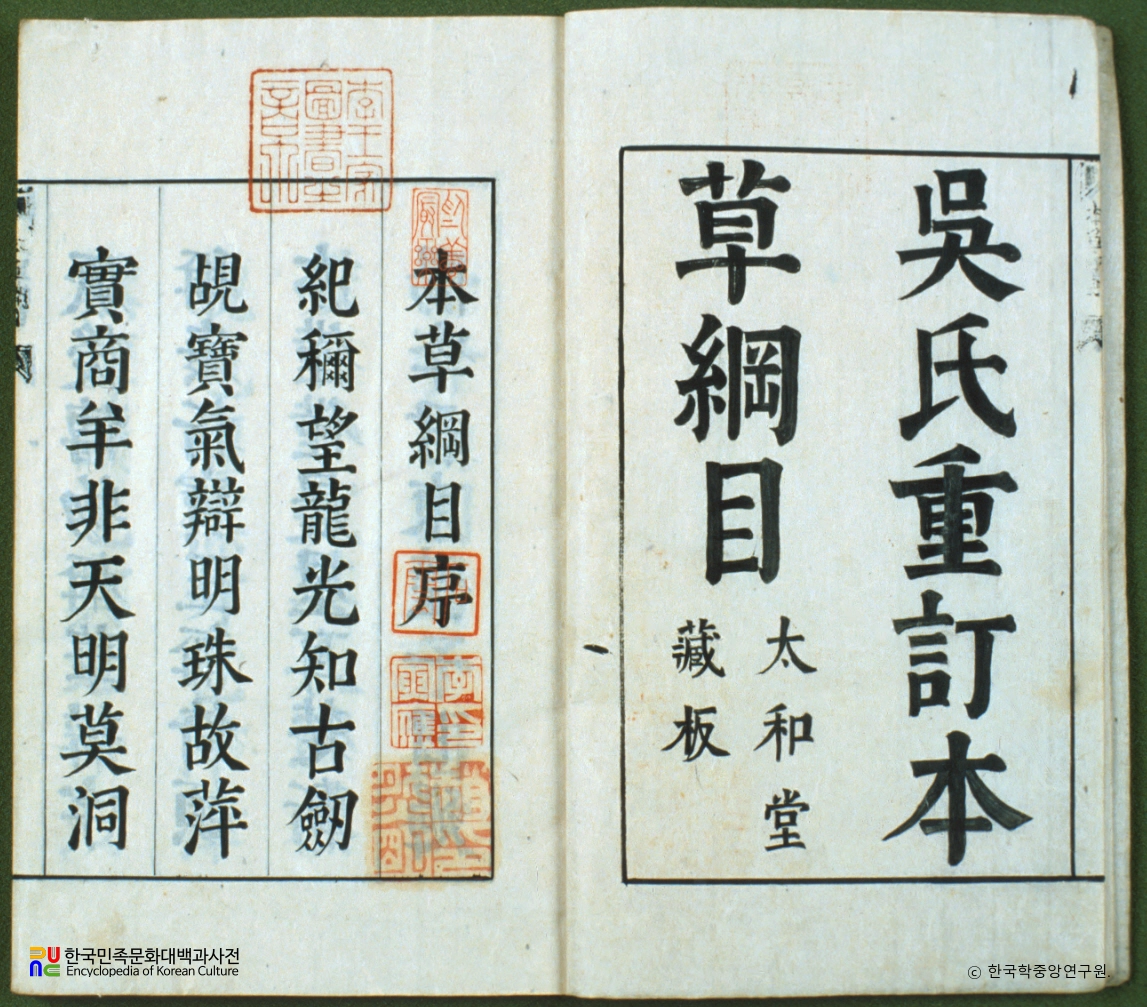 吳氏重訂本
草綱目
太和堂
藏板
本草綱目序
紀稱望龍光知古劒
覘寶氣辯明珠故萍
實商羊非天明莫洞
李王家
圖書之
한국민족문화대백과사전
Encyclopedia of Korean Culture
ⓒ 한국학중앙연구원.